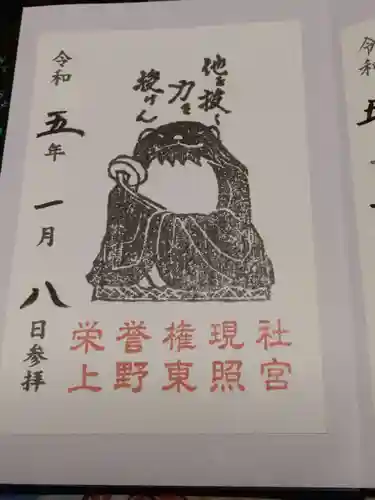 他を抜く
力を
授けん
栄誉権現社
上野東照宮
令和五年一月八日参拝
令和